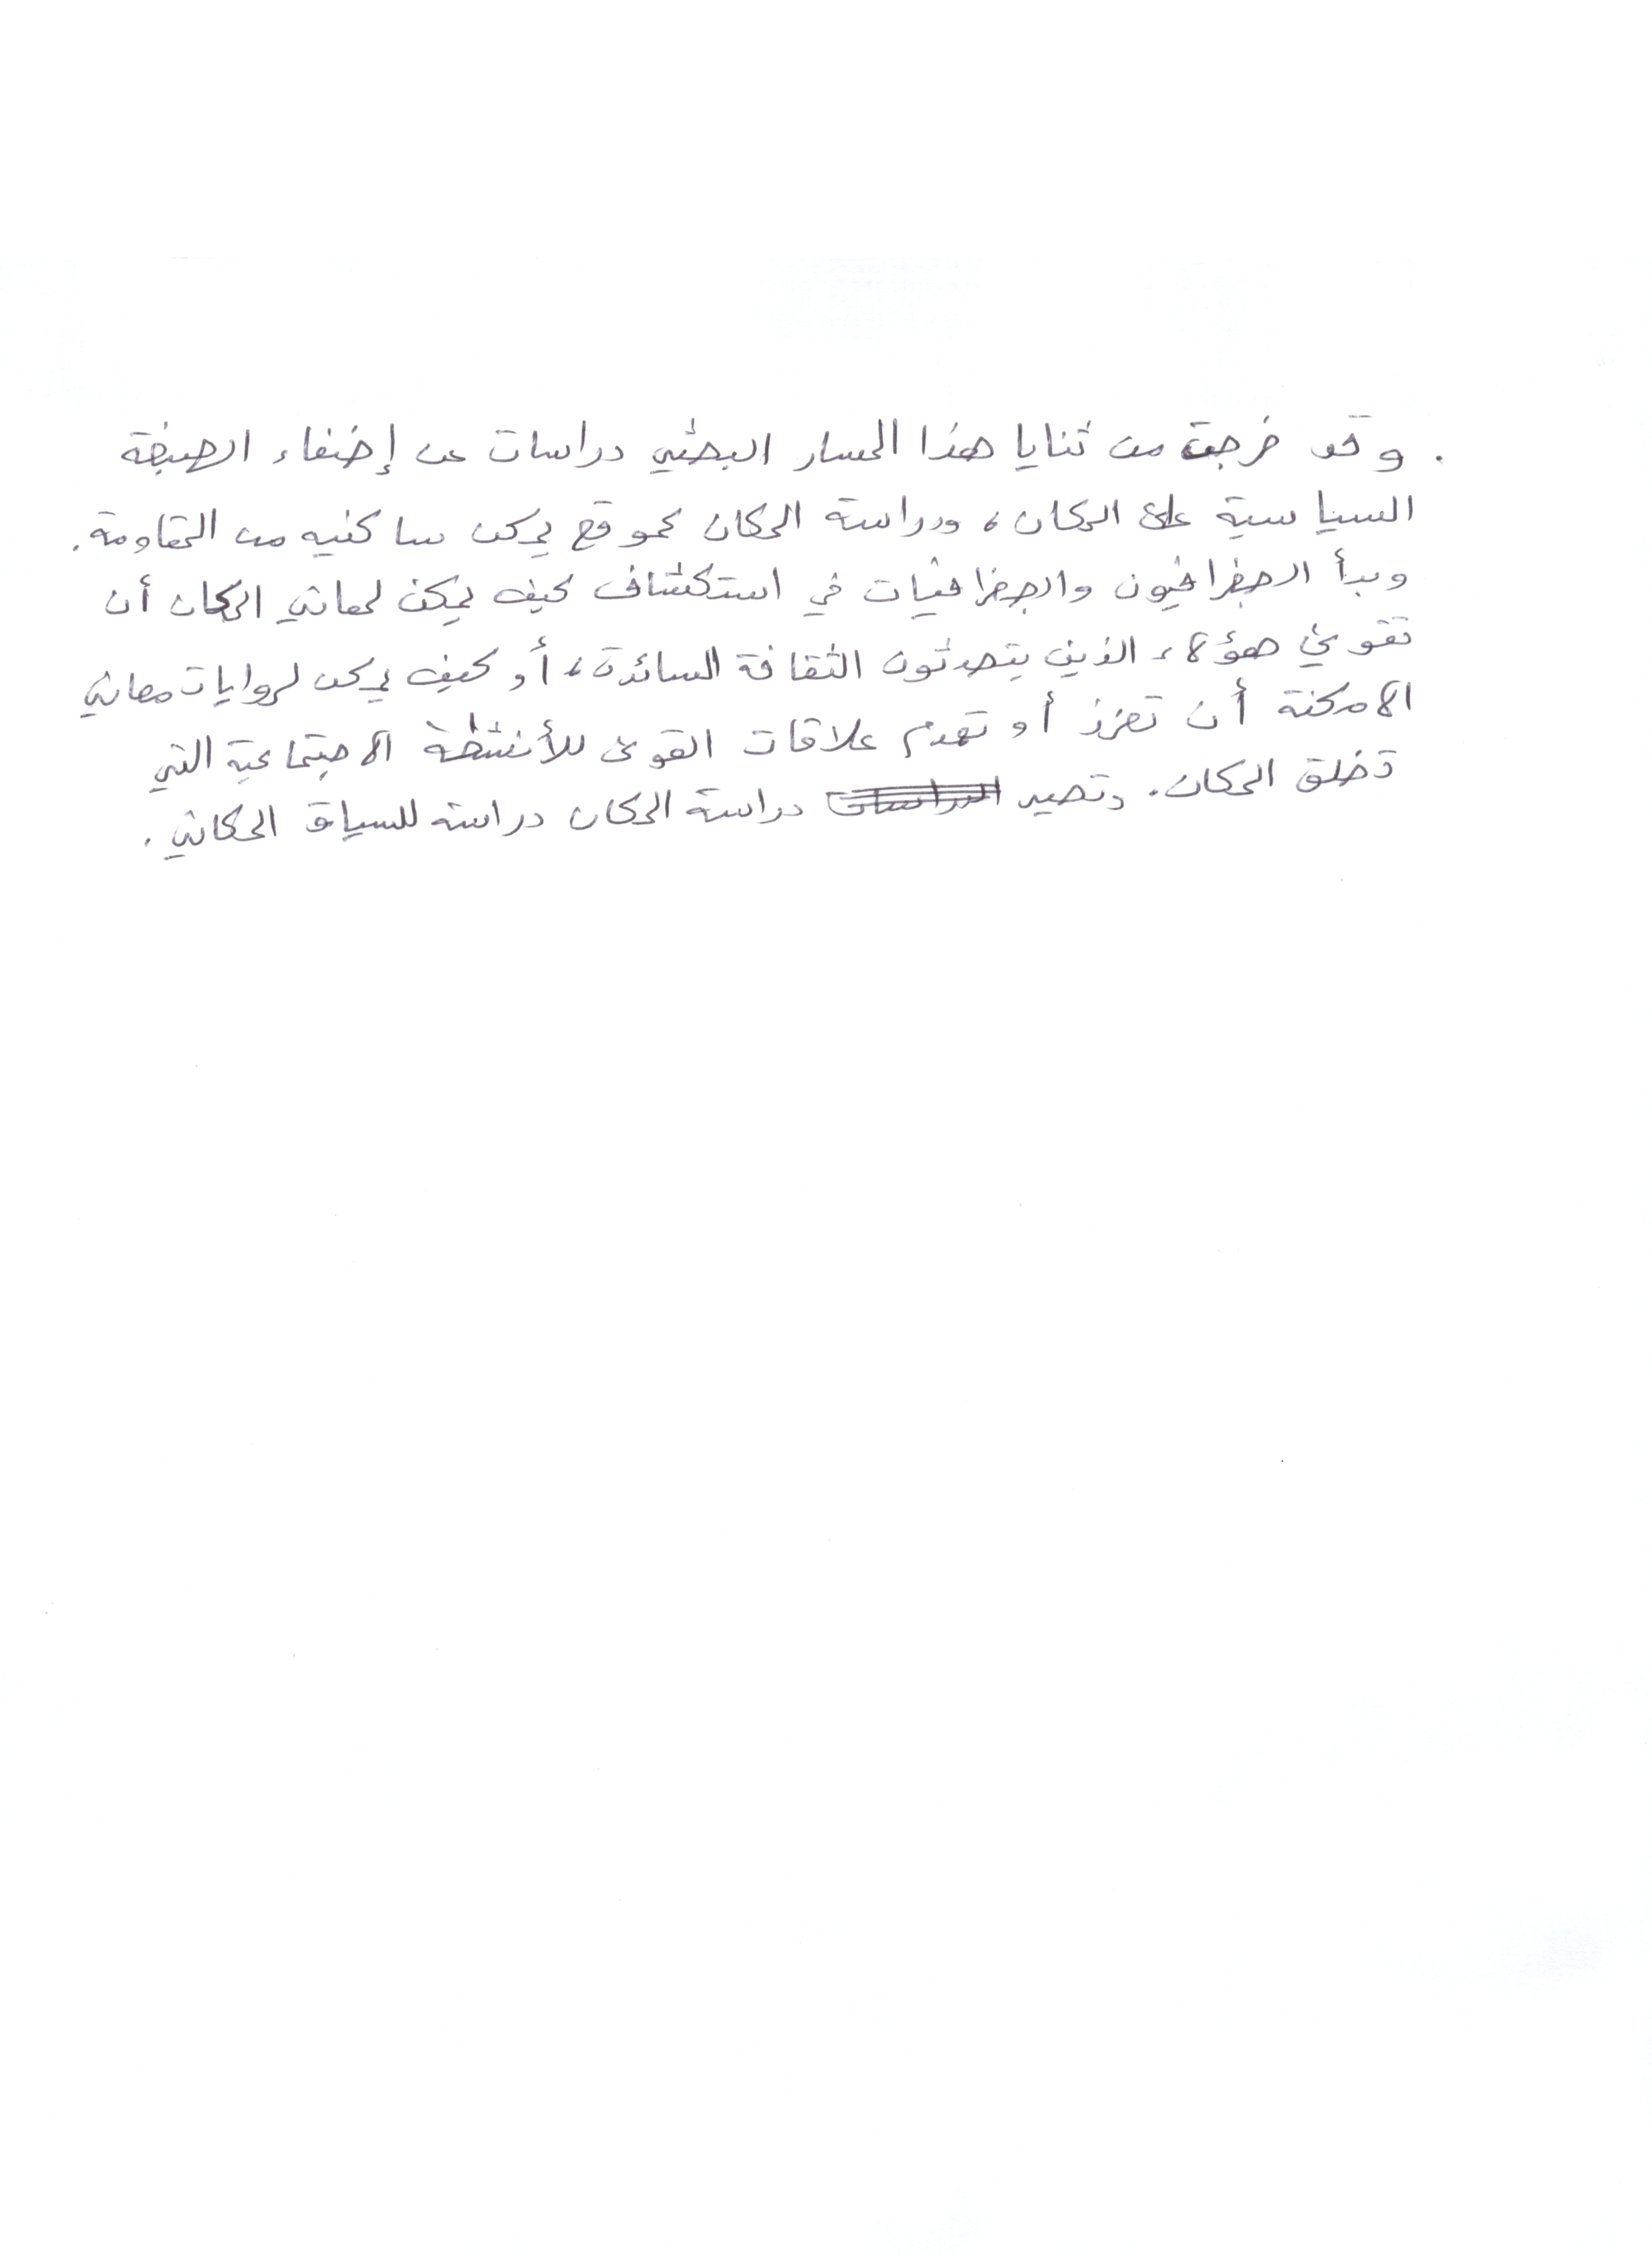 . وقد خرجت من ثنايا هذا المسار البحثي دراسات عن إضفاء الصبغة
السياسية على المكان، ودراسة المكان كموقع يمكن ساكنيه من المقاومة.
وبدأ الجغرافيون والجغرافيات في استكشاف كيف يمكن لمعاني المكان أن
تقوي هؤلاء الذين يتحدثون الثقافة السائدة، أو كيف يمكن لروايات معاني
الامكنة أن تعزز أو تهدم علاقات القوى للأنشطة الاجتماعية التي
تخلق المكان. وتصير دراسة المكان دراسة للسياق المكاني.